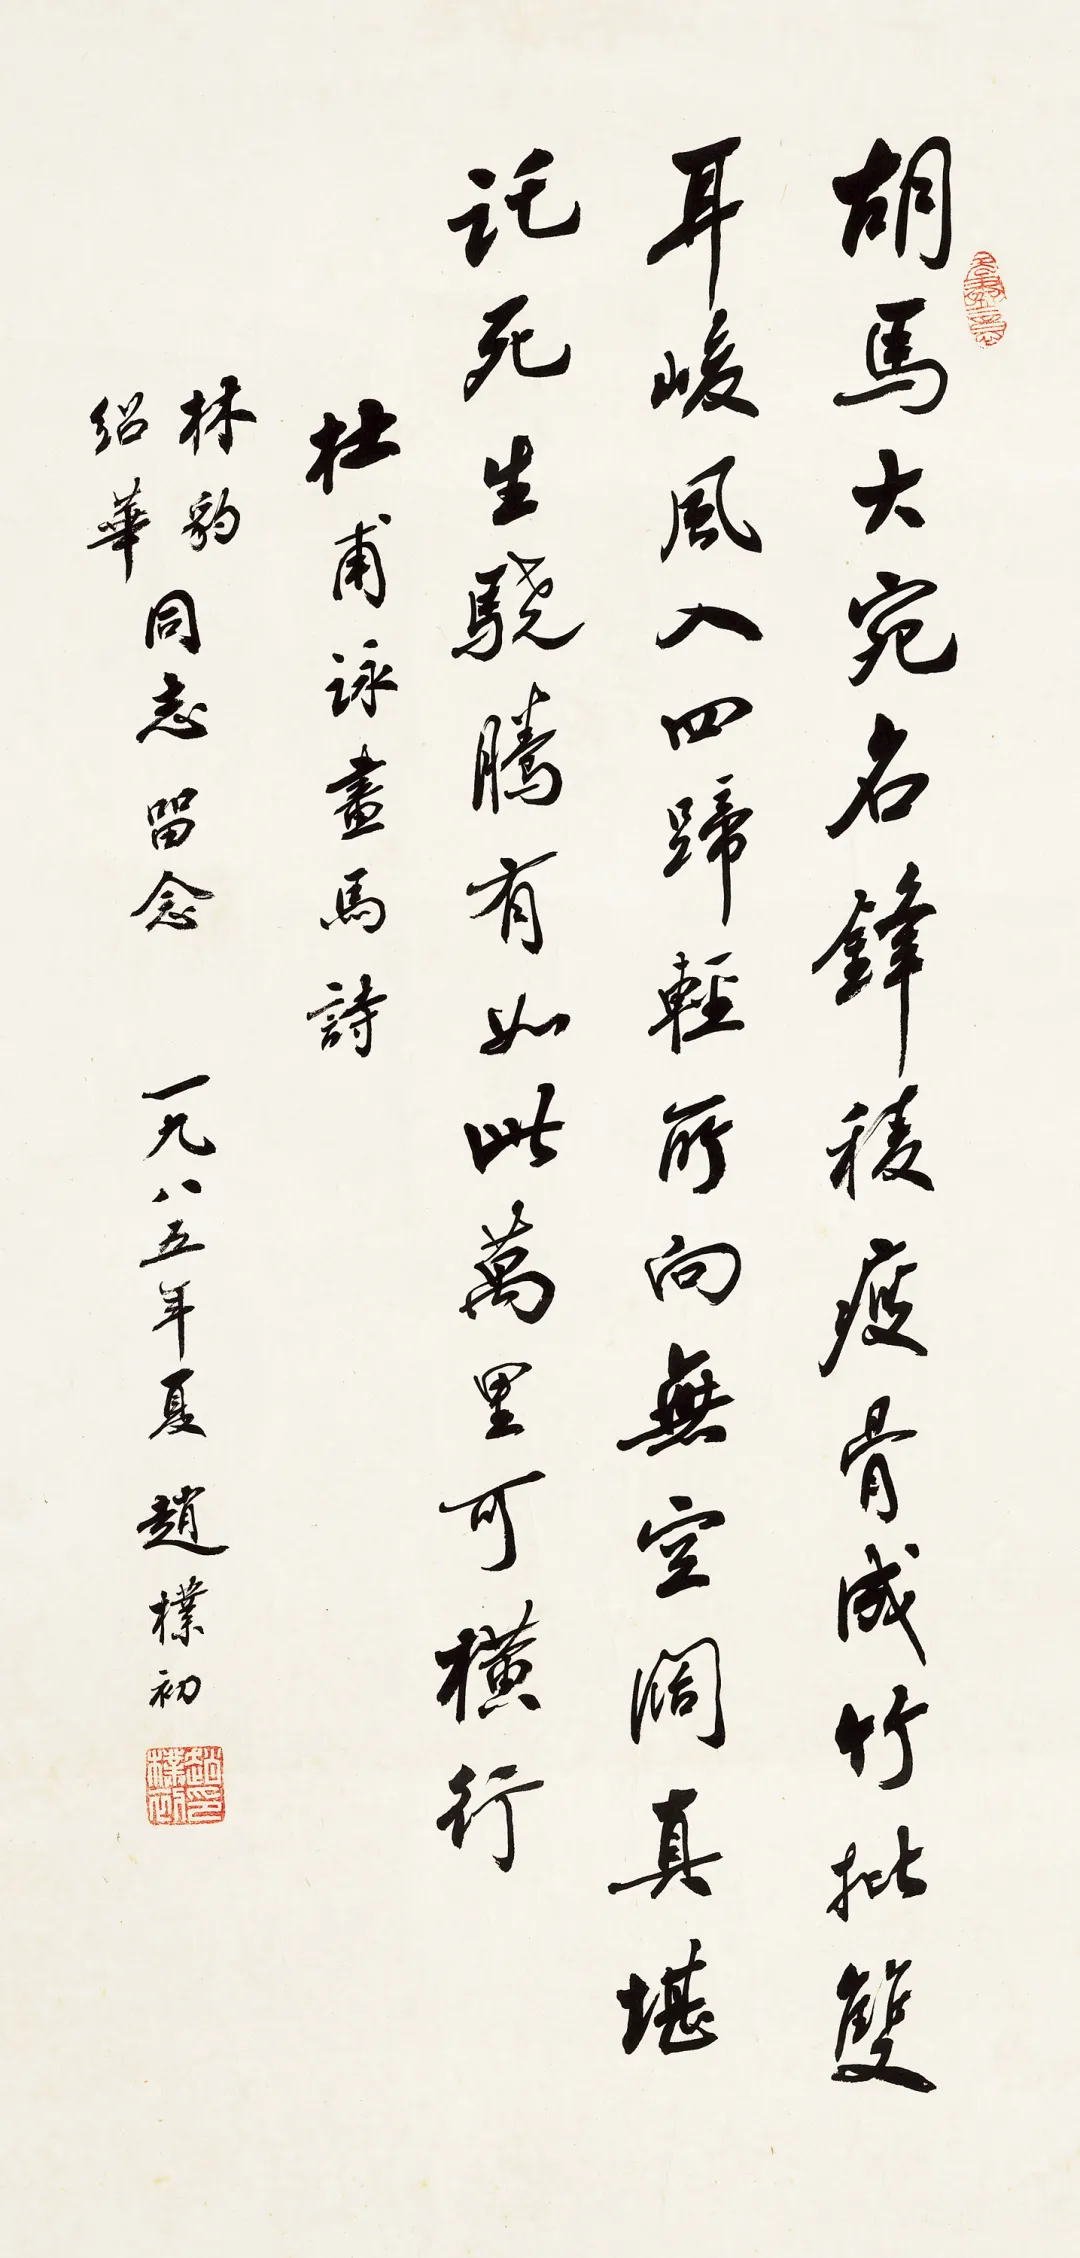 胡馬大宛名鋒稜瘦骨成竹批雙
耳峻風入四蹄輕所向無空闊真堪
託死生驍騰有如此萬里可橫行
杜甫詠畫馬詩
林豹
紹華
同志留念 一九八五年夏 趙樸初
趙樸初印